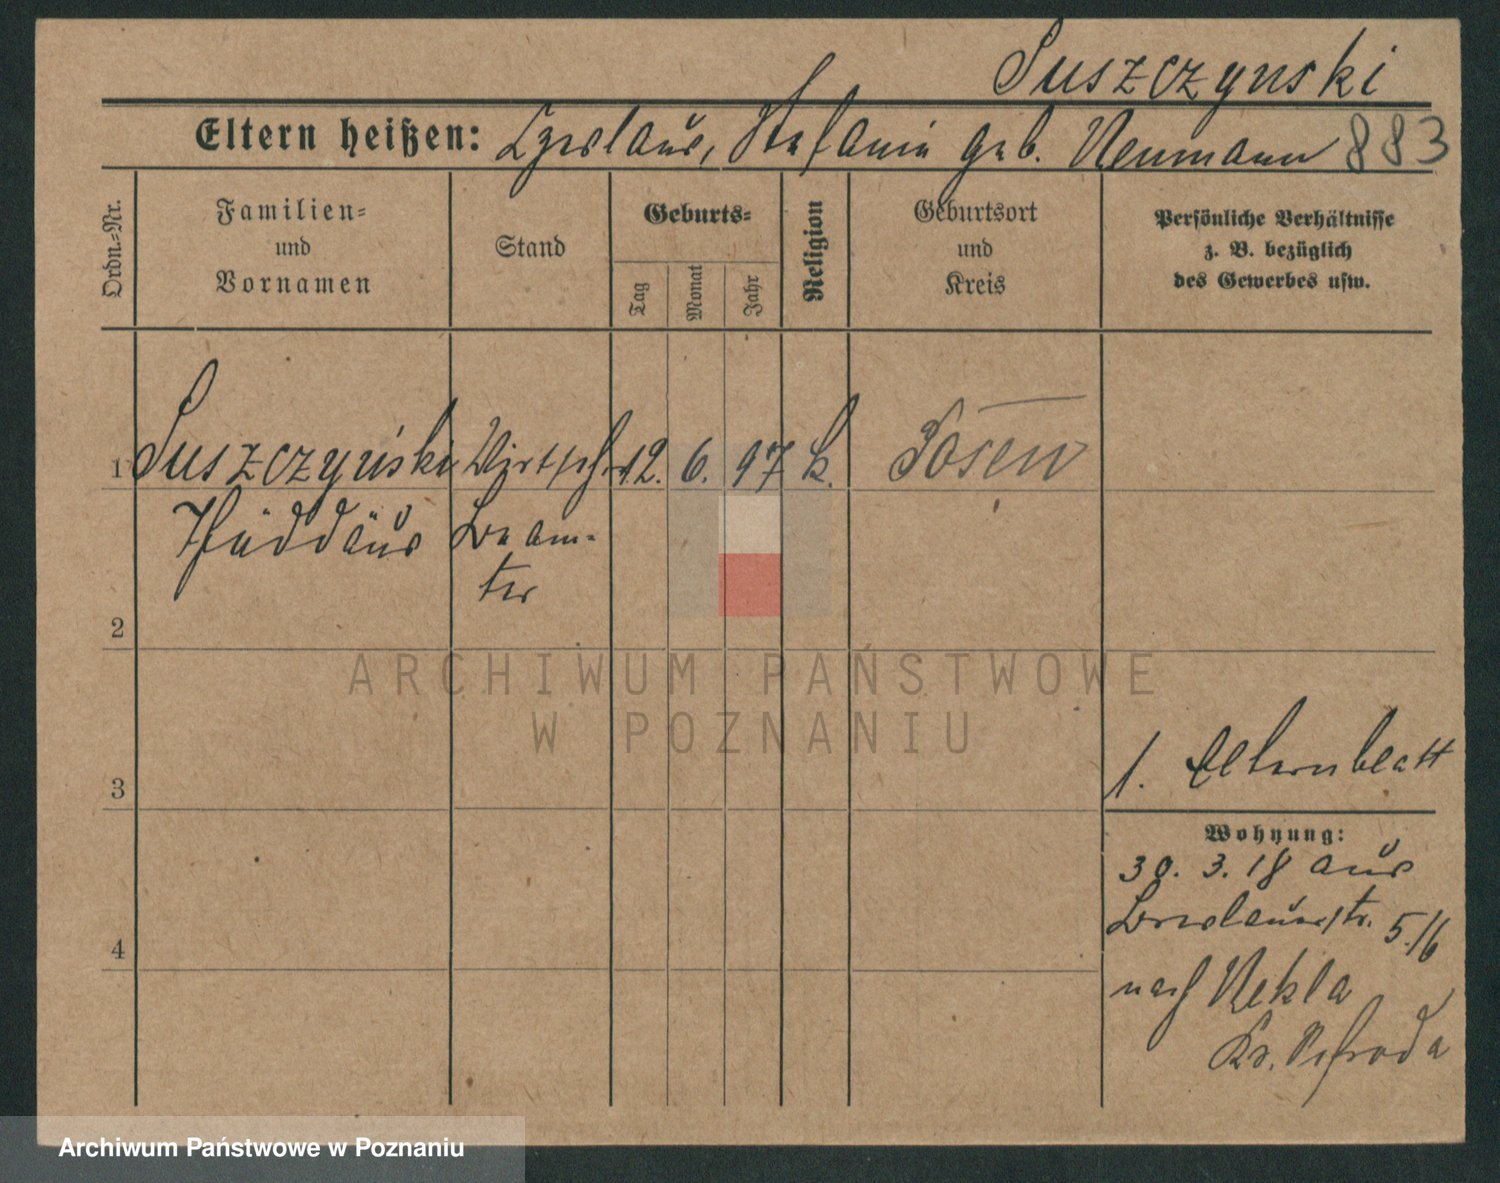 Suszczynski
Eltern heißen: Czeslaus, Stefanie geb. Neumann 883
Ordn.-Nr.
Familien-
und
Vornamen
Stand
Geburts-
Tag
Monat
Jahr
Religion
Geburtsort
und
Kreis
Persönliche Verhältnisse
z. B. bezüglich
des Gewerbes usw.
1 Suszczyński Wirtsch. 12. 6. 97 k. Posen
Thäddäus Beam-
ter
2
ARCHIWUM PAŃSTWOWE
W POZNANIU
3
1. Elternblatt
Wohnung:
30. 3. 18 aus
Breslauerstr. 5/6
4
nach Nekla
Kr. Schroda
Archiwum Państwowe w Poznaniu